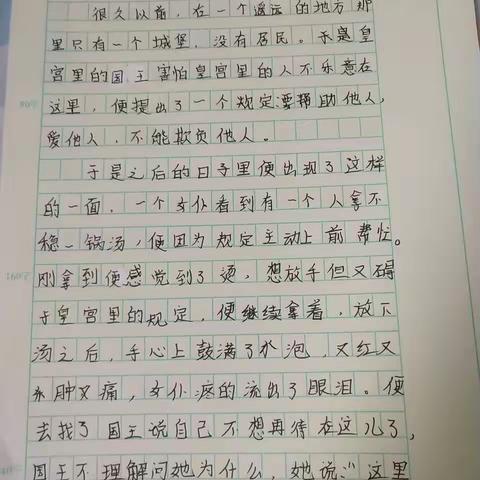 很久以前，在一个遥远的地方那
里只有一个城堡，没有居民。于是皇
宫里的国王害怕皇宫里的人不乐意在
这里，便提出了一个规定要帮助他人，
爱他人，不能欺负他人。
于是之后的日子里便出现了这样
的一面，一个女仆看到有一个人拿不
稳一锅汤，便因为规定主动上前帮忙。
刚拿到便感觉到了烫，想放手但又碍
于皇宫里的规定，便继续拿着，放下
汤之后，手心上鼓满了水泡，又红又
肿又痛，女仆疼的流出了眼泪。便
去找了国王说自己不想再待在这儿了，
国王不理解问她为什么，她说：“这里